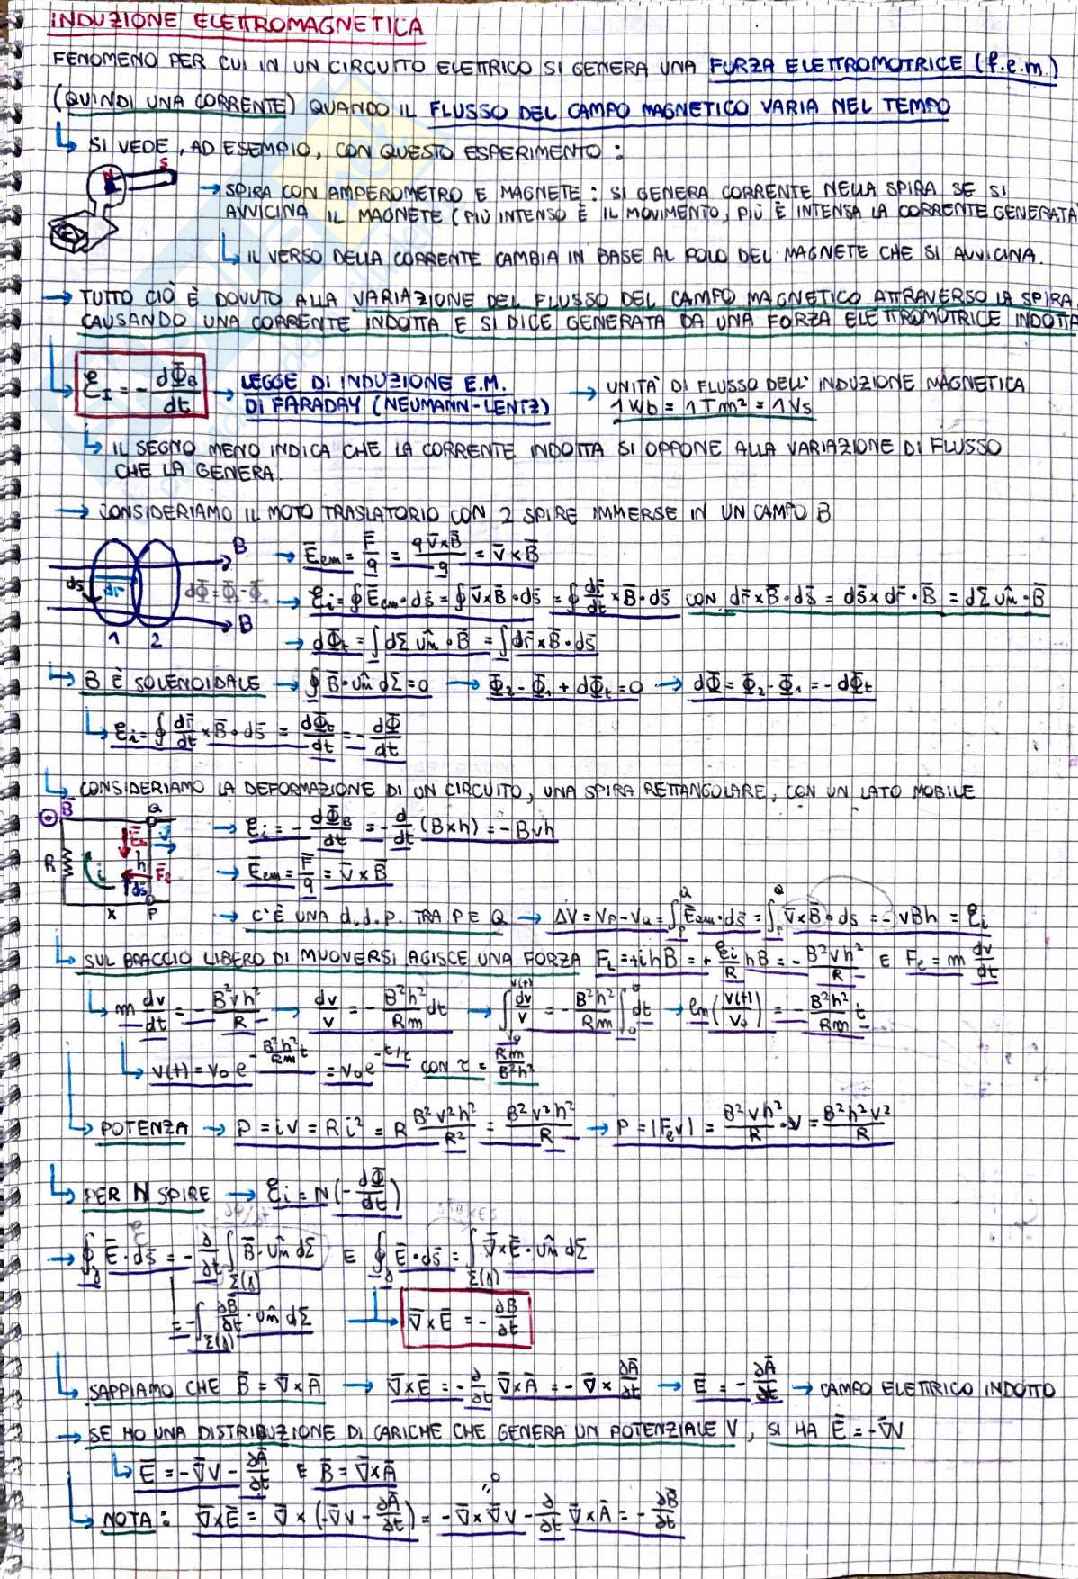 INDUZIONE ELETTROMAGNETICA
FENOMENO PER CUI IN UN CIRCUITO ELETTRICO SI GENERA UNA FORZA ELETTROMOTRICE (f.e.m.)
(QUINDI UNA CORRENTE) QUANDO IL FLUSSO DEL CAMPO MAGNETICO VARIA NEL TEMPO
↳ SI VEDE, AD ESEMPIO, CON QUESTO ESPERIMENTO:
N S
→ SPIRA CON AMPEROMETRO E MAGNETE: SI GENERA CORRENTE NELLA SPIRA SE SI
AVVICINA IL MAGNETE (PIÙ INTENSO È IL MOVIMENTO, PIÙ È INTENSA LA CORRENTE GENERATA
↳ IL VERSO DELLA CORRENTE CAMBIA IN BASE AL POLO DEL MAGNETE CHE SI AVVICINA.
→ TUTTO CIÒ È DOVUTO ALLA VARIAZIONE DEL FLUSSO DEL CAMPO MAGNETICO ATTRAVERSO LA SPIRA,
CAUSANDO UNA CORRENTE INDOTTA E SI DICE GENERATA DA UNA FORZA ELETTROMOTRICE INDOTTA
↳ ℰ_I = - dΦ̄_B/dt → LEGGE DI INDUZIONE E.M. → UNITÀ DI FLUSSO DELL'INDUZIONE MAGNETICA
DI FARADAY (NEUMANN-LENTZ) 1Wb = 1Tm² = 1Vs
↳ IL SEGNO MENO INDICA CHE LA CORRENTE INDOTTA SI OPPONE ALLA VARIAZIONE DI FLUSSO
CHE LA GENERA.
→ CONSIDERIAMO IL MOTO TRASLATORIO CON 2 SPIRE IMMERSE IN UN CAMPO B
B → Ē_em = F̄/q = q v̄×B̄/q = v̄×B̄
ds dr dΦ̄=Φ̄₂-Φ̄₁ → ℰi = ∮Ē_em·ds̄ = ∮v̄×B̄·ds̄ = ∮ dr̄/dt ×B̄·ds̄ CON dr̄×B̄·ds̄ = ds̄×dr̄·B̄ = dΣ ûn·B̄
1 2 B → dΦ̄t = ∫dΣ ûn·B̄ = ∫dr̄×B̄·ds̄
↳ B È SOLENOIDALE → ∮B̄·ûn dΣ=0 → Φ̄₂-Φ̄₁+dΦ̄t=0 → dΦ̄=Φ̄₂-Φ̄₁=-dΦ̄t
↳ ℰi = ∮ dr̄/dt ×B̄·ds̄ = dΦ̄t/dt = - dΦ̄/dt
↳ CONSIDERIAMO LA DEFORMAZIONE DI UN CIRCUITO, UNA SPIRA RETTANGOLARE, CON UN LATO MOBILE
B̄ Q → ℰi = - dΦ̄B/dt = - d/dt (Bxh) = -Bvh
R i h v̄ ds̄ → Ē_em = F̄/q = v̄×B̄
x P → C'È UNA d.d.p. TRA P E Q → ΔV = Vp-VQ = ∫ᴾ^Q Ē_em·ds̄ = ∫ᴾ^Q v̄×B̄·ds = -vBh = ℰi
↳ SUL BRACCIO LIBERO DI MUOVERSI AGISCE UNA FORZA F_L=+ihB = + ℰi/R hB = - B²vh²/R E F_L = m dv/dt
↳ m dv/dt = - B²vh²/R → dv/v = - B²h²/Rm dt → ∫ dv/v = - B²h²/Rm ∫ dt → ln(v(t)/v₀) = - B²h²/Rm t
↳ v(t) = v₀ e^(-B²h²/Rm t) = v₀e^(-t/τ) CON τ = Rm/B²h²
↳ POTENZA → P = iV = Ri² = R B²v²h²/R² = B²v²h²/R → P = |F_L v| = B²vh²/R ·v = B²h²v²/R
↳ PER N SPIRE → ℰi = N(-dΦ̄/dt)
→ ∮ Ē·ds̄ = - ∂/∂t ∫_Σ(s) B̄·ûn dΣ E ∮ Ē·ds̄ = ∫_Σ(s) ∇̄×Ē·ûn dΣ
= -∫_Σ(s) ∂B̄/∂t ·ûn dΣ ↳ ∇̄×Ē = - ∂B̄/∂t
↳ SAPPIAMO CHE B̄ = ∇̄×Ā → ∇̄×Ē = - ∂/∂t ∇̄×Ā = -∇̄× ∂Ā/∂t → Ē = - ∂Ā/∂t → CAMPO ELETTRICO INDOTTO
→ SE HO UNA DISTRIBUZIONE DI CARICHE CHE GENERA UN POTENZIALE V, SI HA Ē = -∇̄V
↳ Ē = -∇̄V - ∂Ā/∂t E B̄ = ∇̄×Ā
↳ NOTA: ∇̄×Ē = ∇̄×(-∇̄V - ∂Ā/∂t) = -∇̄×∇̄V - ∂/∂t ∇̄×Ā = - ∂B̄/∂t